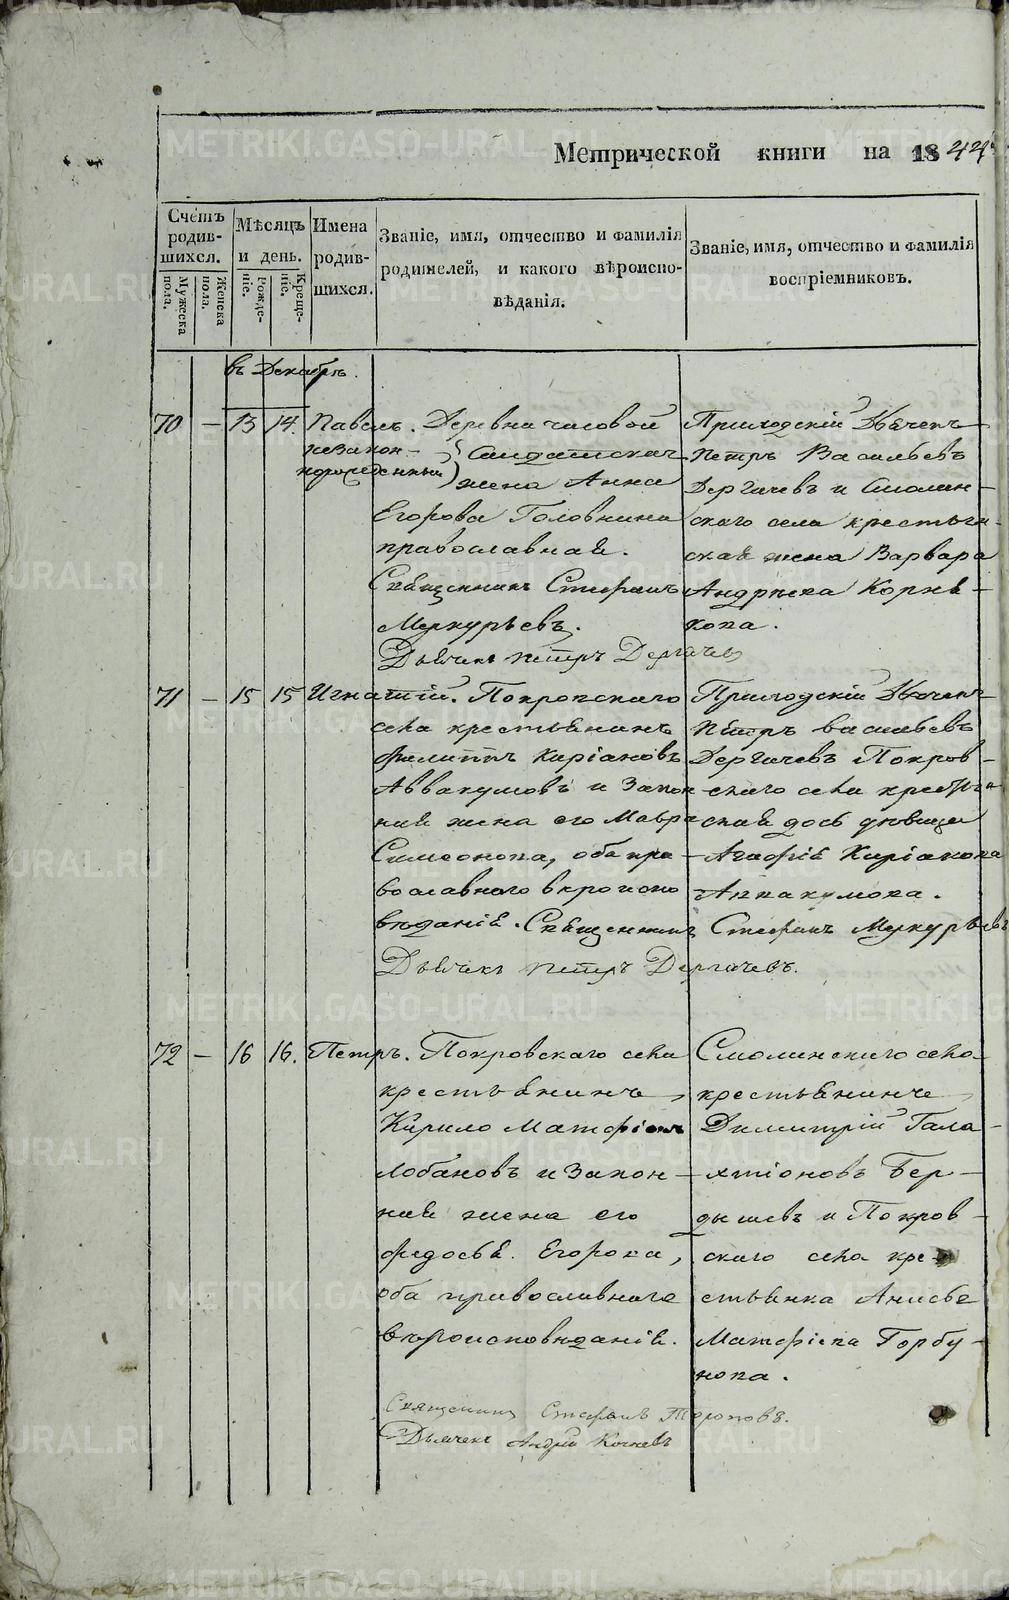 Метрической книги на 1844
Счетъ родив-шихся.
Мужеска пола.
Женска пола.
Мѣсяцъ и день.
Рожде-ніе.
Креще-ніе.
Имена родив-шихся.
Званіе, имя, отчество и фамилія
родителей, и какого вѣроиспо-
вѣданія.
Званіе, имя, отчество и фамилія
воспріемниковъ.
въ Декабрѣ.
70 — 13 14. Павелъ.
незакон-
норожденный
Деревни часовой
Салдатская
жена Анна
Егорова Головнина
православная.
Священникъ Стефанъ
Меркурьевъ.
Дьячекъ Петръ Дергачевъ
Приходскій Дьячекъ
Петръ Васильевъ
Дергачевъ и Смолин-
скаго села крестьян-
ская жена Варвара
Андреева Корня-
кова.
71 — 15 15 Игнатій. Покровскаго
села крестьянинъ
Филиппъ Киріановъ
Аввакумовъ и закон
ная жена его Мавра
Симеонова, оба пра-
вославнаго вѣроиспо
вѣданія. Священникъ Стефанъ Меркурьевъ
Дьячекъ Петръ Дергачевъ.
Приходскій Дьячекъ
Петръ Васильевъ
Дергачевъ Покров-
скаго села крестьян
ская дочь девица
Агафія Киріакова
Аввакумова.
72 — 16 16. Петръ. Покровскаго села
крестьянинъ
Кирило Матфіевъ
Лобановъ и закон-
ная жена его
Федосья Егорова,
оба православнаго
вѣроисповѣданія.
Священникъ Стефанъ Топоровъ.
Дьячекъ Андрей
Смолинскаго села
крестьянинъ
Димитрій Гала-
ктіоновъ Бер-
дышевъ и Покров-
скаго села кре-
стьянка Анисья
Матфіева Горбу-
нова.
METRIKI.GASO-URAL.RU